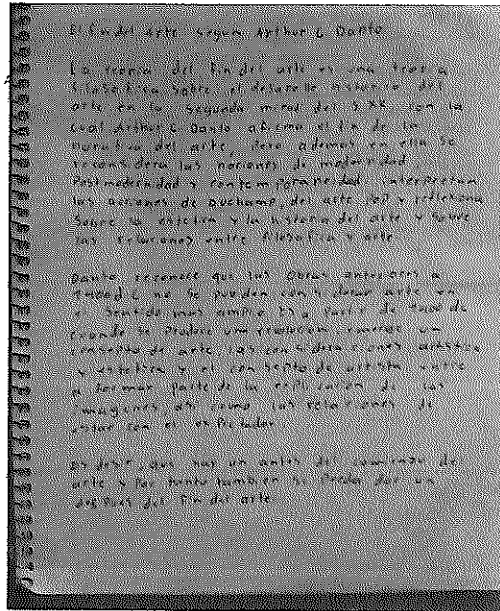 El fin del arte segun Arthur C Danto
La teoria del fin del arte es una tesis
filosofica sobre el desarrollo historico del
arte en la segunda mitad del S XX con la
cual Arthur C Danto afirma el fin de la
narativa del arte, pero ademas en ella se
reconsidera las nociones de modernidad
Postmodernidad y contemporaneidad interpretan
las acciones de Duchamp, del arte pop y reflexiona
Sobre la estetica y la historia del arte y sobre
las relaciones entre filosofia y arte
Danto que las obras anteriores a
no se pueden considerar arte en
el sentido mas amplio Es a partir de
cuando se produce una un
concepto de arte las consideraciones artistica
y estetica y el concepto de artista entre
a formar parte de la explicacion de las
imagenes, asi como las relaciones de
estar con el espectador
es desir, que hay un antes del comienzo de
arte y por tanto tambien se puede dar un
despues del fin del arte